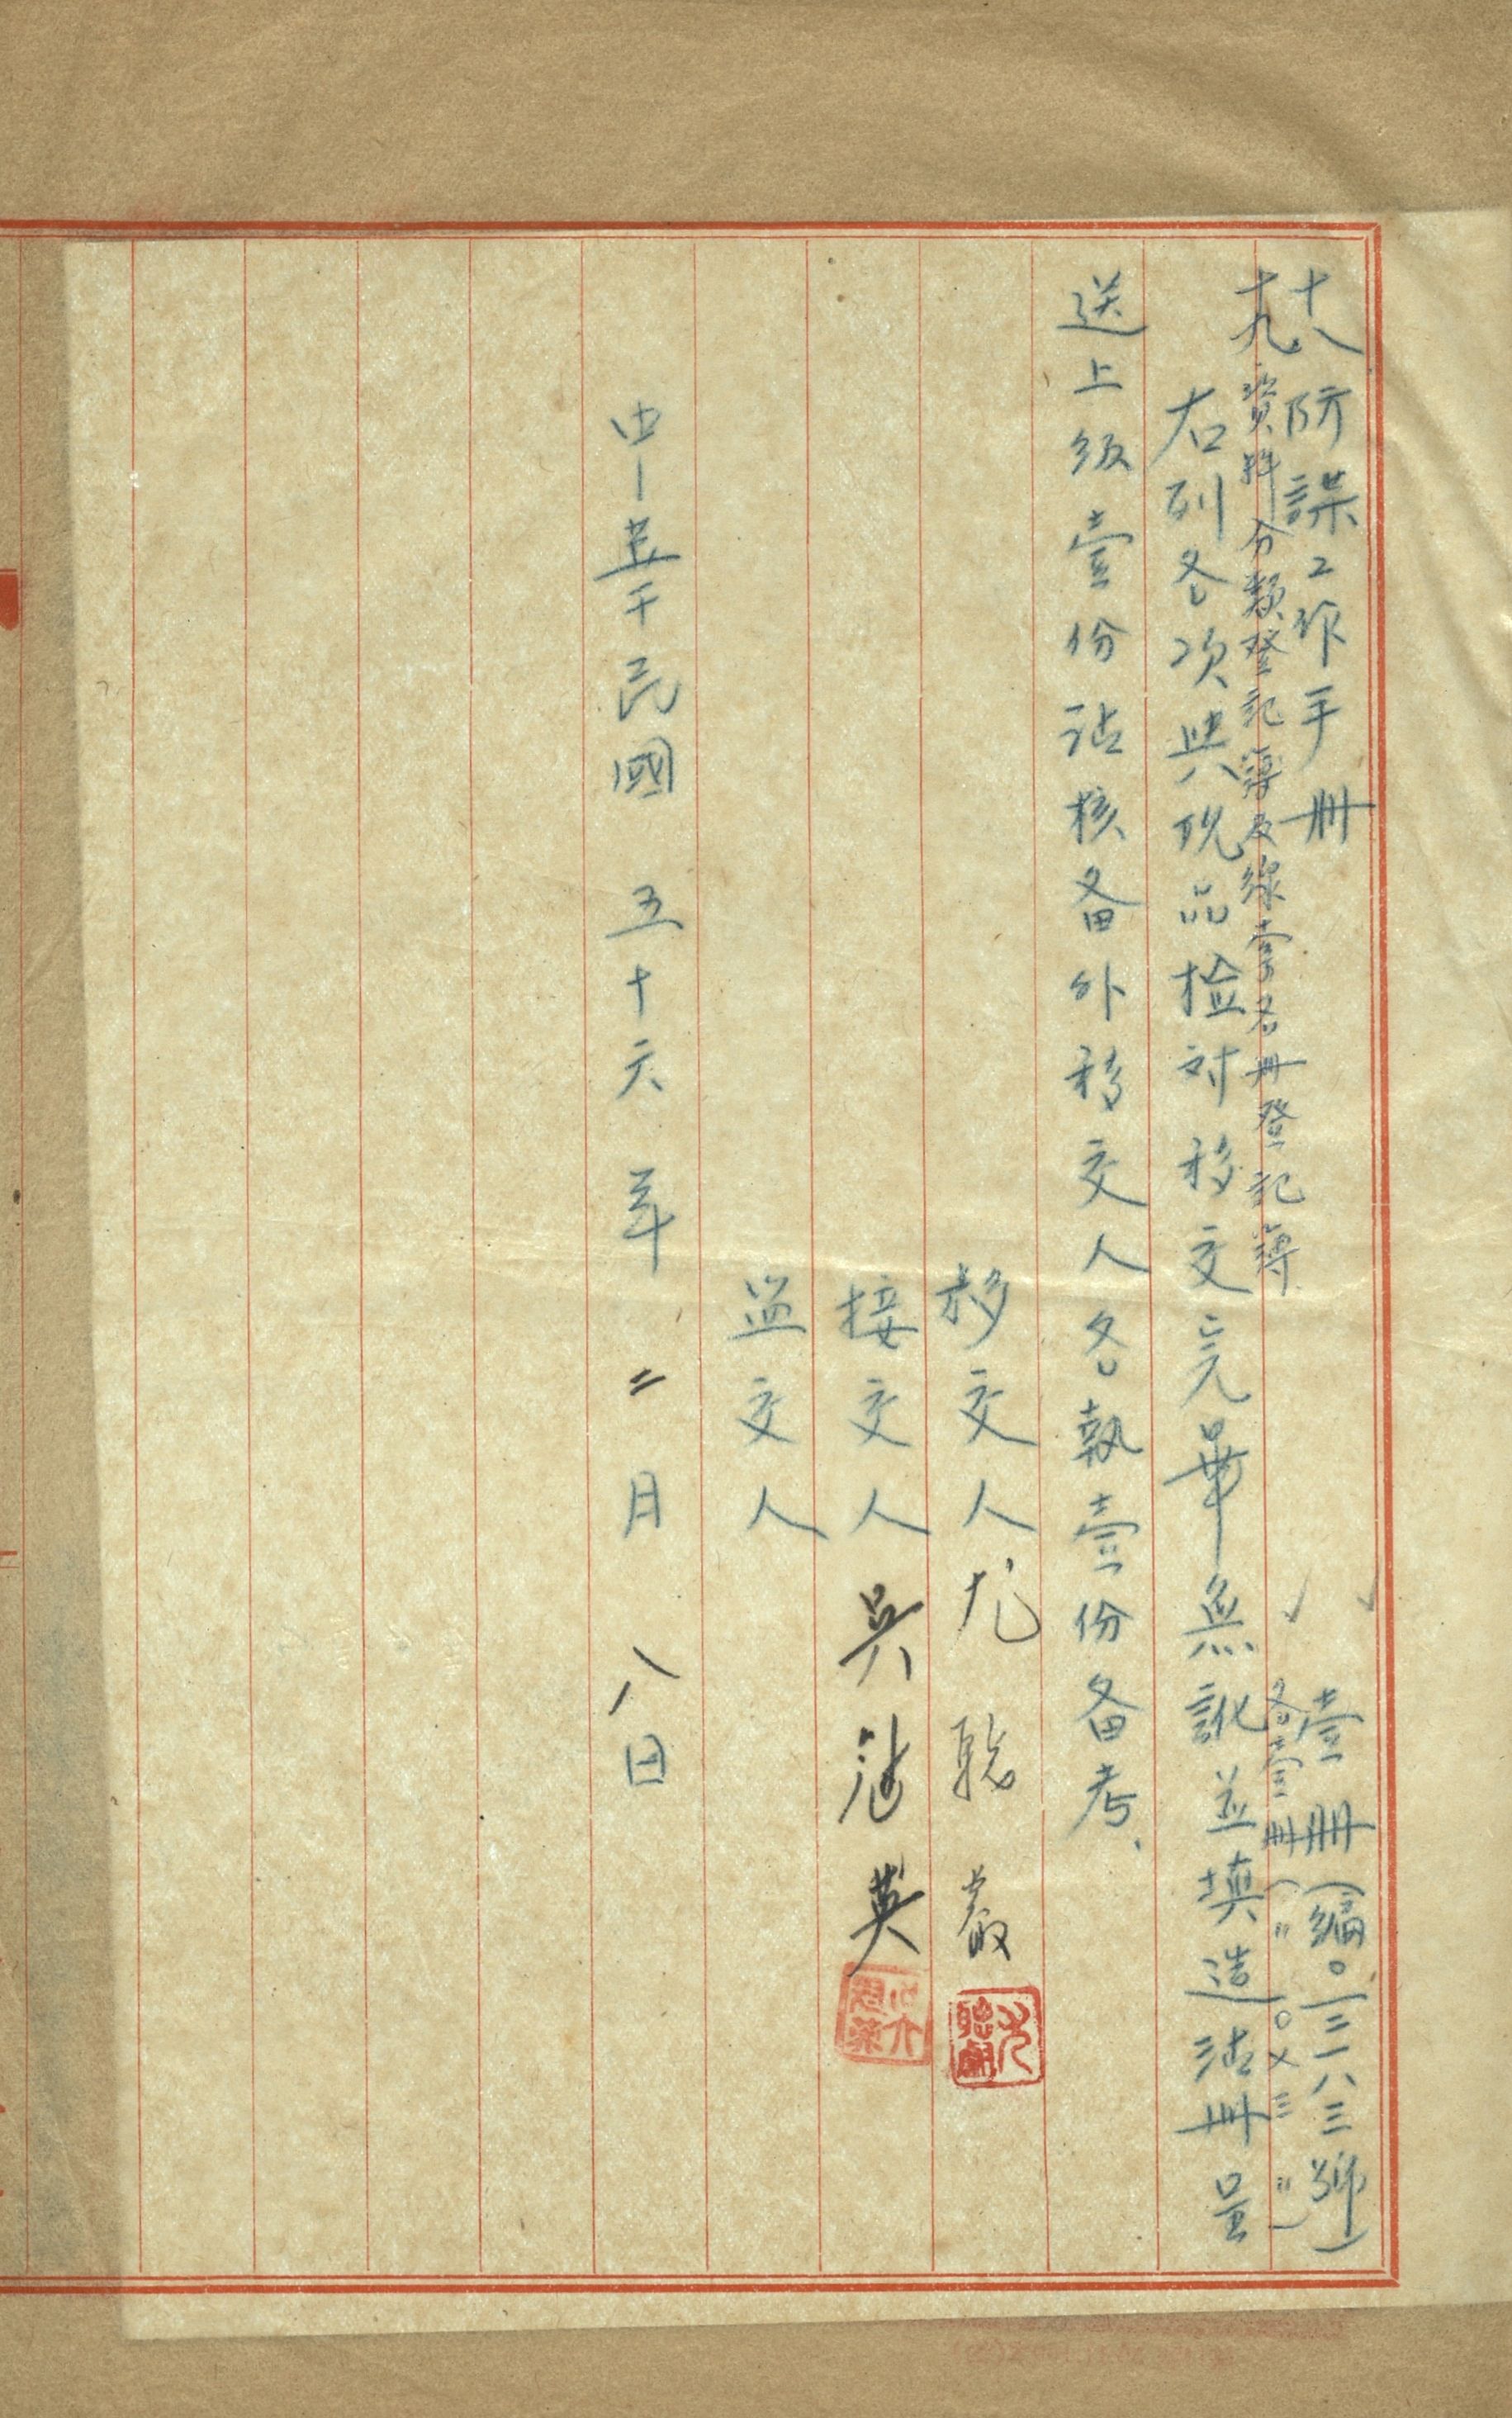 十八防諜工作手冊 壹冊(編○一三一八三號)
十九資料分類登記簿及線索名冊登記簿 各壹冊(〃○×三〃)
右列各項與現品檢对移交完畢無訛並填造清冊呈
送上級壹份請核备外移交人各執壹份备考、
移交人尤聰嚴
接交人吳 英
监交人
中華民國 五十六年 二月 八日